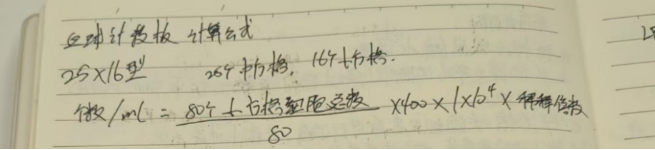 血球计数板 计算公式
25×16型 25个中方格, 16个小方格.
个数/ml = 80个小方格细胞总数/80 ×400×1×10⁴×稀释倍数